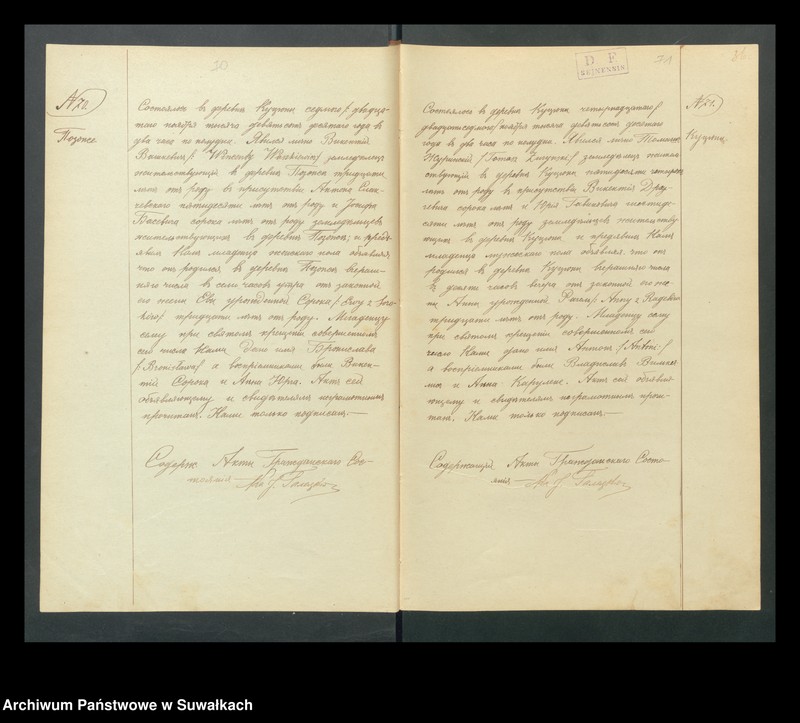 10
№ 70.
Позопсе
Состоялось въ деревнѣ Куцюны седьмого / двадца-
того ноября тысяча девятьсотъ десятаго года въ
два часа по полудни. Явился лично Викентій
/ Wincenty / земледѣлецъ
жительствующій въ деревнѣ Позопсе тридцати
лѣтъ отъ роду въ присутствіи Антона
пятидесяти лѣтъ отъ роду и Іосифа
сорока лѣтъ отъ роду земледѣльцевъ
жительствующихъ въ деревнѣ Позопсе; и предъ-
явилъ Намъ младенца женскаго пола объявляя,
что онъ родился въ деревнѣ Позопсе вчераш-
няго числа въ семь часовъ утра отъ законной
его жены Евы урожденной Сорока / Ewy z Soro-
ków / тридцати лѣтъ отъ роду. Младенцу
сему при святомъ крещеніи совершенномъ
сего числа Нами дано имя Бронислава
/ Bronisława / а воспріемниками были Викен-
тій Сорока и Анна Юга. Актъ сей
объявляющему и свидѣтелямъ неграмотнымъ
прочитанъ, Нами только подписанъ.—
Содерж. Акты Гражданскаго Сос-
тоянія
D F
71
86
№ 71.
Куцюны
Состоялось въ деревнѣ Куцюны четырнадцатаго /
двадцать седьмого / ноября тысяча девятьсотъ десятаго
года въ два часа по полудни. Явился лично
/ Tomasz / земледѣлецъ житель-
ствующій въ деревнѣ Куцюны пятидесяти четырехъ
лѣтъ отъ роду въ присутствіи Викентія
сорока лѣтъ и Юрія
лѣтъ отъ роду земледѣльцевъ жительству-
ющихъ въ деревнѣ Куцюны и предъявилъ Намъ
младенца мужескаго пола объявляя, что онъ
родился въ деревнѣ Куцюны вчерашняго числа
въ девять часовъ вечера отъ законной его же-
ны Анны урожденной / Anny z
тридцати лѣтъ отъ роду. Младенцу сему
при святомъ крещеніи совершенномъ сего
числа Нами дано имя Антонъ / Antoni /
а воспріемниками были Владиславъ
и Анна. Актъ сей объявля-
ющему и свидѣтелямъ неграмотнымъ прочи-
танъ, Нами только подписанъ.—
Содержащій Акты Гражданскаго Состо-
янія
Archiwum Państwowe w Suwałkach